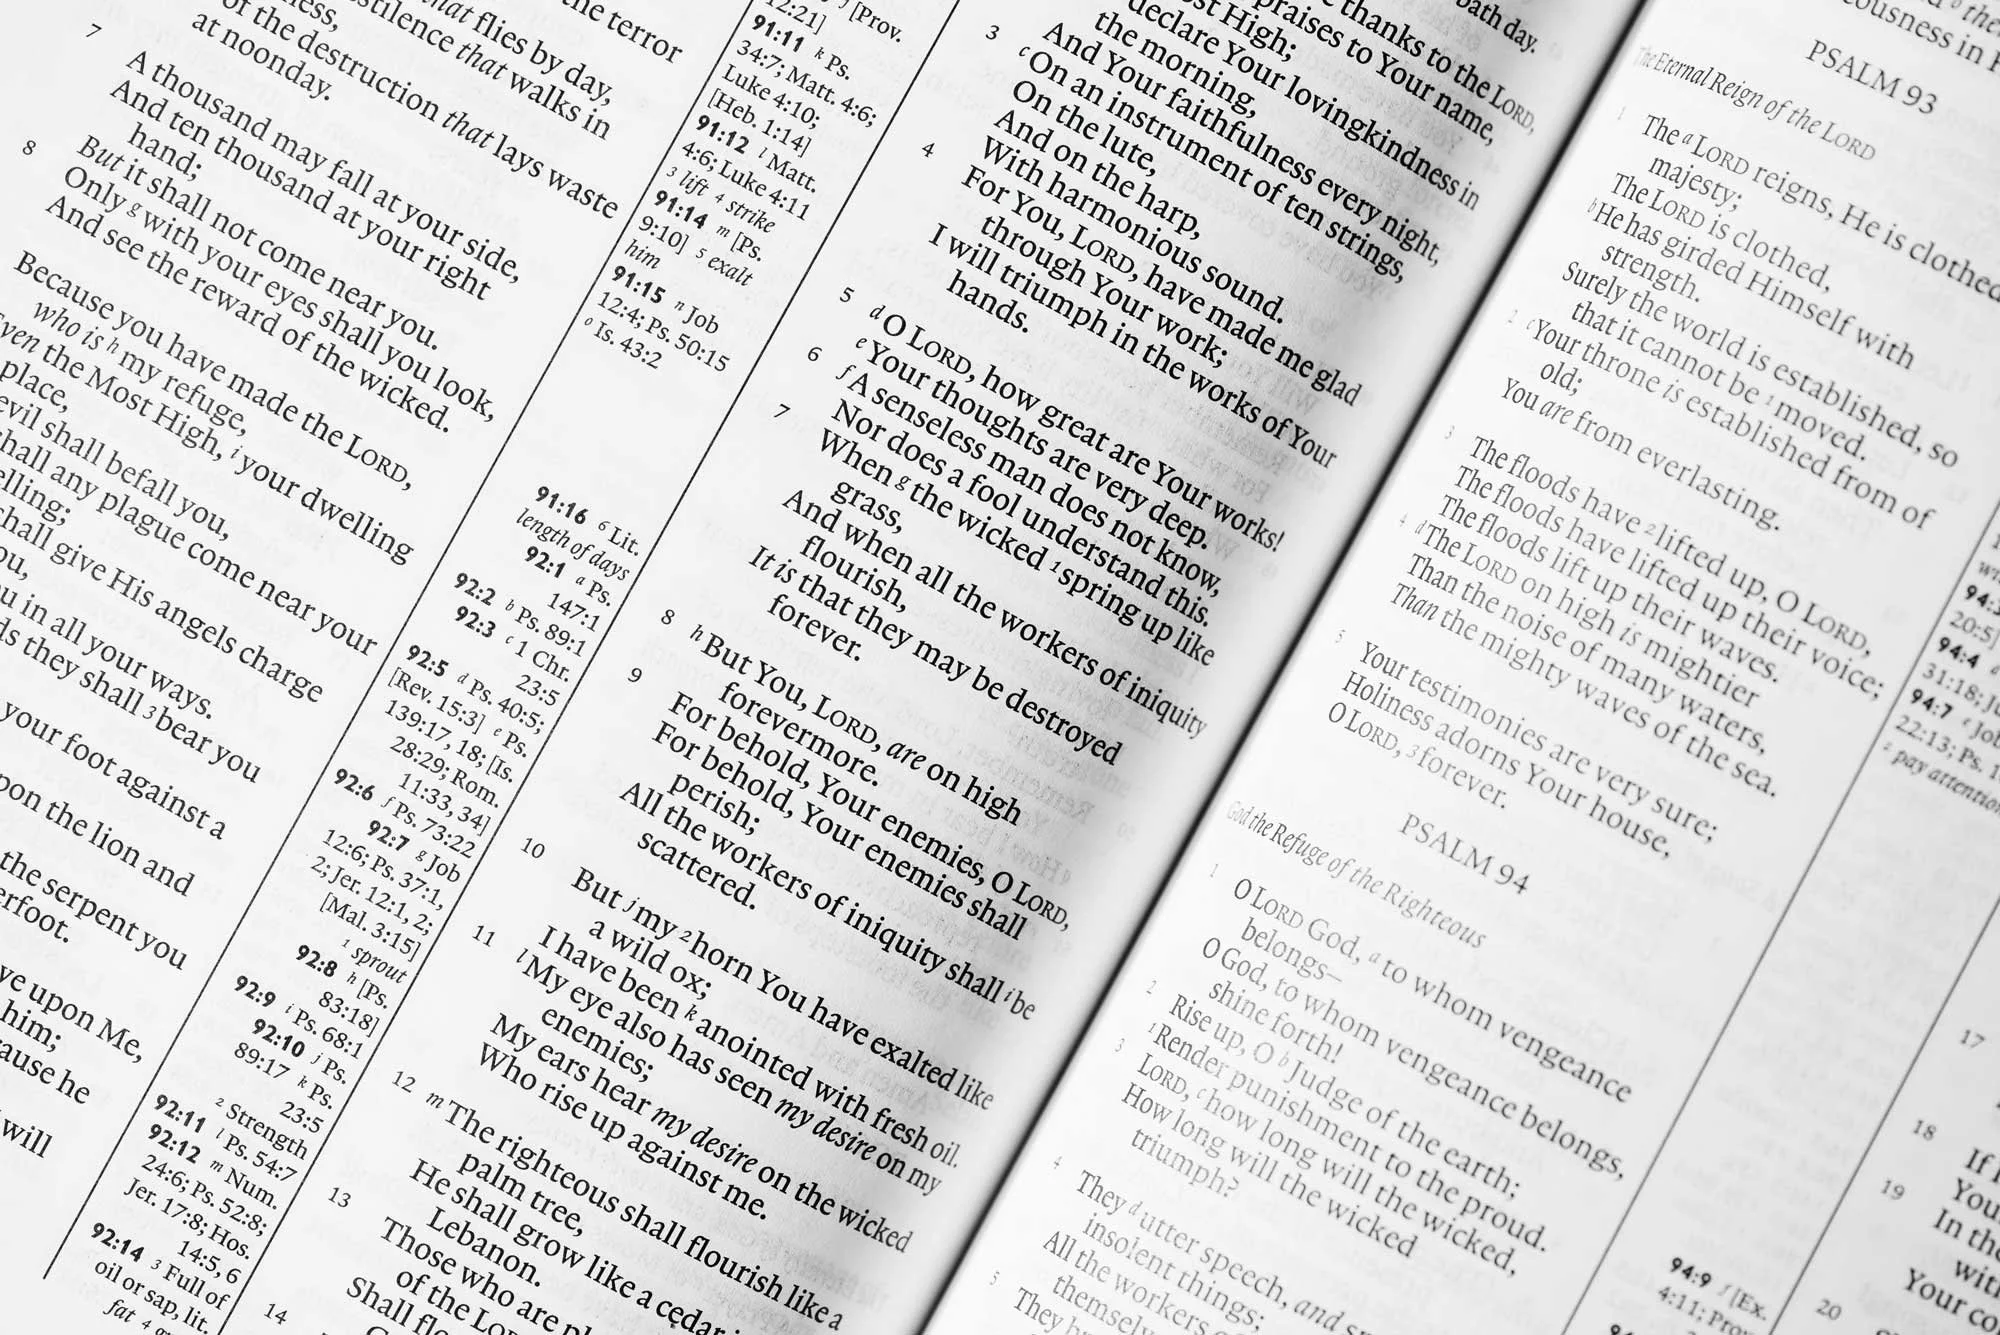 the terror
that flies by day,
stilence that walks in
of the destruction that lays waste
at noonday.
7 A thousand may fall at your side,
And ten thousand at your right
hand;
But it shall not come near you.
8 Only g with your eyes shall you look,
And see the reward of the wicked.
Because you have made the LORD,
who is h my refuge,
Even the Most High, i your dwelling
place,
evil shall befall you,
shall any plague come near your
elling;
shall give His angels charge
ou,
u in all your ways.
ds they shall 3 bear you
your foot against a
pon the lion and
the serpent you
erfoot.
ve upon Me,
him;
ause he
will
12:21]
j [Prov.
91:11 k Ps.
34:7; Matt. 4:6;
Luke 4:10;
[Heb. 1:14]
91:12 l Matt.
4:6; Luke 4:11
3 lift 4 strike
91:14 m [Ps.
9:10] 5 exalt
him
91:15 n Job
12:4; Ps. 50:15
o Is. 43:2
91:16 6 Lit.
length of days
92:1 a Ps.
147:1
92:2 b Ps. 89:1
92:3 c 1 Chr.
23:5
92:5 d Ps. 40:5;
[Rev. 15:3] e Ps.
139:17, 18; [Is.
28:29; Rom.
11:33, 34]
92:6 f Ps. 73:22
92:7 g Job
12:6; Ps. 37:1,
2; Jer. 12:1, 2;
[Mal. 3:15]
1 sprout
92:8 h [Ps.
83:18]
92:9 i Ps. 68:1
92:10 j Ps.
89:17 k Ps.
23:5
2 Strength
92:11 l Ps. 54:7
92:12 m Num.
24:6; Ps. 52:8;
Jer. 17:8; Hos.
14:5, 6
92:14 3 Full of
oil or sap, lit.
fat 4
bath day.
thanks to the LORD,
praises to Your name,
ost High;
declare Your lovingkindness in
the morning,
And Your faithfulness every night,
3 c On an instrument of ten strings,
On the lute,
And on the harp,
With harmonious sound.
4 For You, LORD, have made me glad
through Your work;
I will triumph in the works of Your
hands.
5 d O LORD, how great are Your works!
e Your thoughts are very deep.
6 f A senseless man does not know,
Nor does a fool understand this.
7 When g the wicked 1 spring up like
grass,
And when all the workers of iniquity
flourish,
It is that they may be destroyed
forever.
8 h But You, LORD, are on high
forevermore.
9 For behold, Your enemies, O LORD,
For behold, Your enemies shall
perish;
All the workers of iniquity shall i be
scattered.
10 But j my 2 horn You have exalted like
a wild ox;
I have been k anointed with fresh oil.
11 l My eye also has seen my desire on my
enemies;
My ears hear my desire on the wicked
Who rise up against me.
12 m The righteous shall flourish like a
palm tree,
He shall grow like a cedar i
Lebanon.
13 Those who are pl
of the LOR
Shall flo
14
ousness in
PSALM 93
The Eternal Reign of the LORD
1 The a LORD reigns, He is clothed
majesty;
The LORD is clothed,
b He has girded Himself with
strength.
Surely the world is established, so
that it cannot be 1 moved.
2 c Your throne is established from of
old;
You are from everlasting.
3 The floods have 2 lifted up, O LORD,
The floods have lifted up their voice;
The floods lift up their waves.
4 d The LORD on high is mightier
Than the noise of many waters,
Than the mighty waves of the sea.
5 Your testimonies are very sure;
Holiness adorns Your house,
O LORD, 3 forever.
PSALM 94
God the Refuge of the Righteous
1 O LORD God, a to whom vengeance
belongs—
O God, to whom vengeance belongs,
shine forth!
2 Rise up, O b Judge of the earth;
1 Render punishment to the proud.
3 LORD, c how long will the wicked,
How long will the wicked
triumph?
4 They d utter speech, and sp
insolent things;
All the workers of
themselv
5 They br
94:
20:5]
94:4
31:18; Ju
94:7 e Job
22:13; Ps. 1
2 pay attention
94:9 f [Ex.
4:11; Prov
17
18 If I
Your
19 In the
with
Your co
20